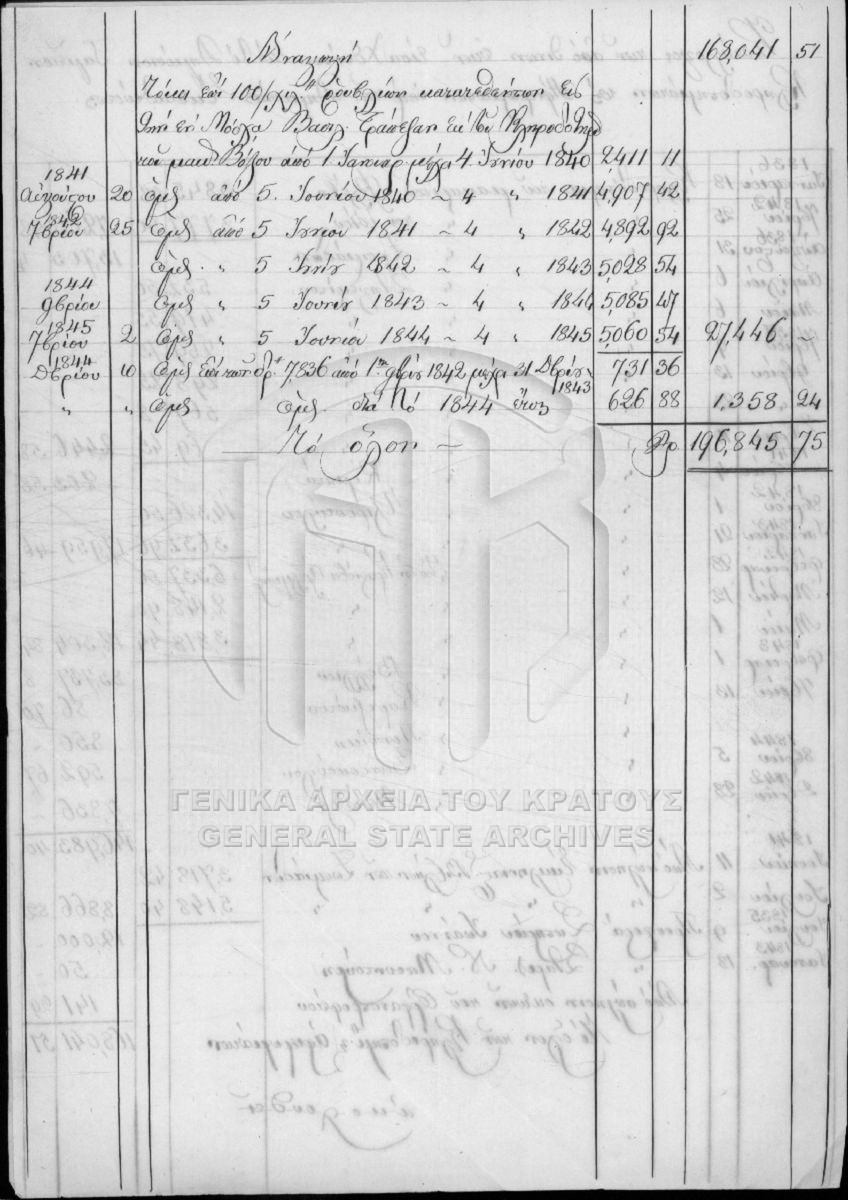 Ἀναγωγή 168,041 51
Τόκοι ἐπὶ 100/χιλ ῥουβλίων κατατεθέντων εἰς
τὴν ἐν Μόσχα Βασιλ. Τράπεζαν ἐκ τοῦ Κληροδοτήμ
τοῦ μακ. Βόζου ἀπὸ 1 Ἰανουαρ. μέχρι 4 Ἰουνίου 1840 2411 11
1841
Αὐγούστου 20 ὁμς ἀπὸ 5. Ἰουνίου 1840 ~ 4 " 1841 4,907 42
1842
7βρίου 25 ὁμς ἀπὸ 5 Ἰουνίου 1841 ~ 4 " 1842 4,892 92
ὁμς. " 5 Ἰουνίου 1842 ~ 4 " 1843 5,028 54
1844
9βρίου ὁμς " 5 Ἰουνίου 1843 ~ 4 " 1844 5,085 47
1845
7βρίου 2 ὁμς " 5 Ἰουνίου 1844 ~ 4 " 1845 5,060 54 27,446 ~
1844
Δβρίου 10 ὁμς ἐπὶ τῶν 7,836 ἀπὸ 1ης 9βρίου 1842 μέχρι 31 Δβρίου 1843 731 36
" " ὁμς ὁμς. διὰ τὸ 1844 ἔτος 626 88 1,358 24
Τὸ ὅλον ~ 196,845 75
ΓΕΝΙΚΑ ΑΡΧΕΙΑ ΤΟΥ ΚΡΑΤΟΥΣ
GENERAL STATE ARCHIVES